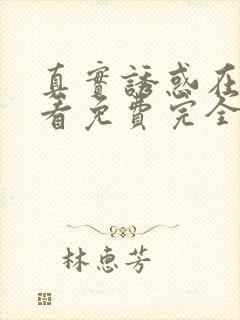 真實誘惑在
看免費完全
林惠芳